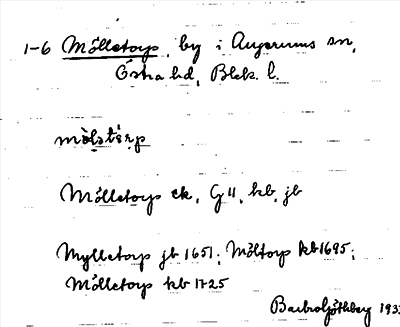 1-6 Mölletorp, by i Augerums sn,
Östra hd, Blek. l.
mölstärp
Mölletorp ek, GU, kb, jb
Mylletorp jb 1651; Möltorp kb 1695;
Mölletorp kb 1725
Göthberg 193